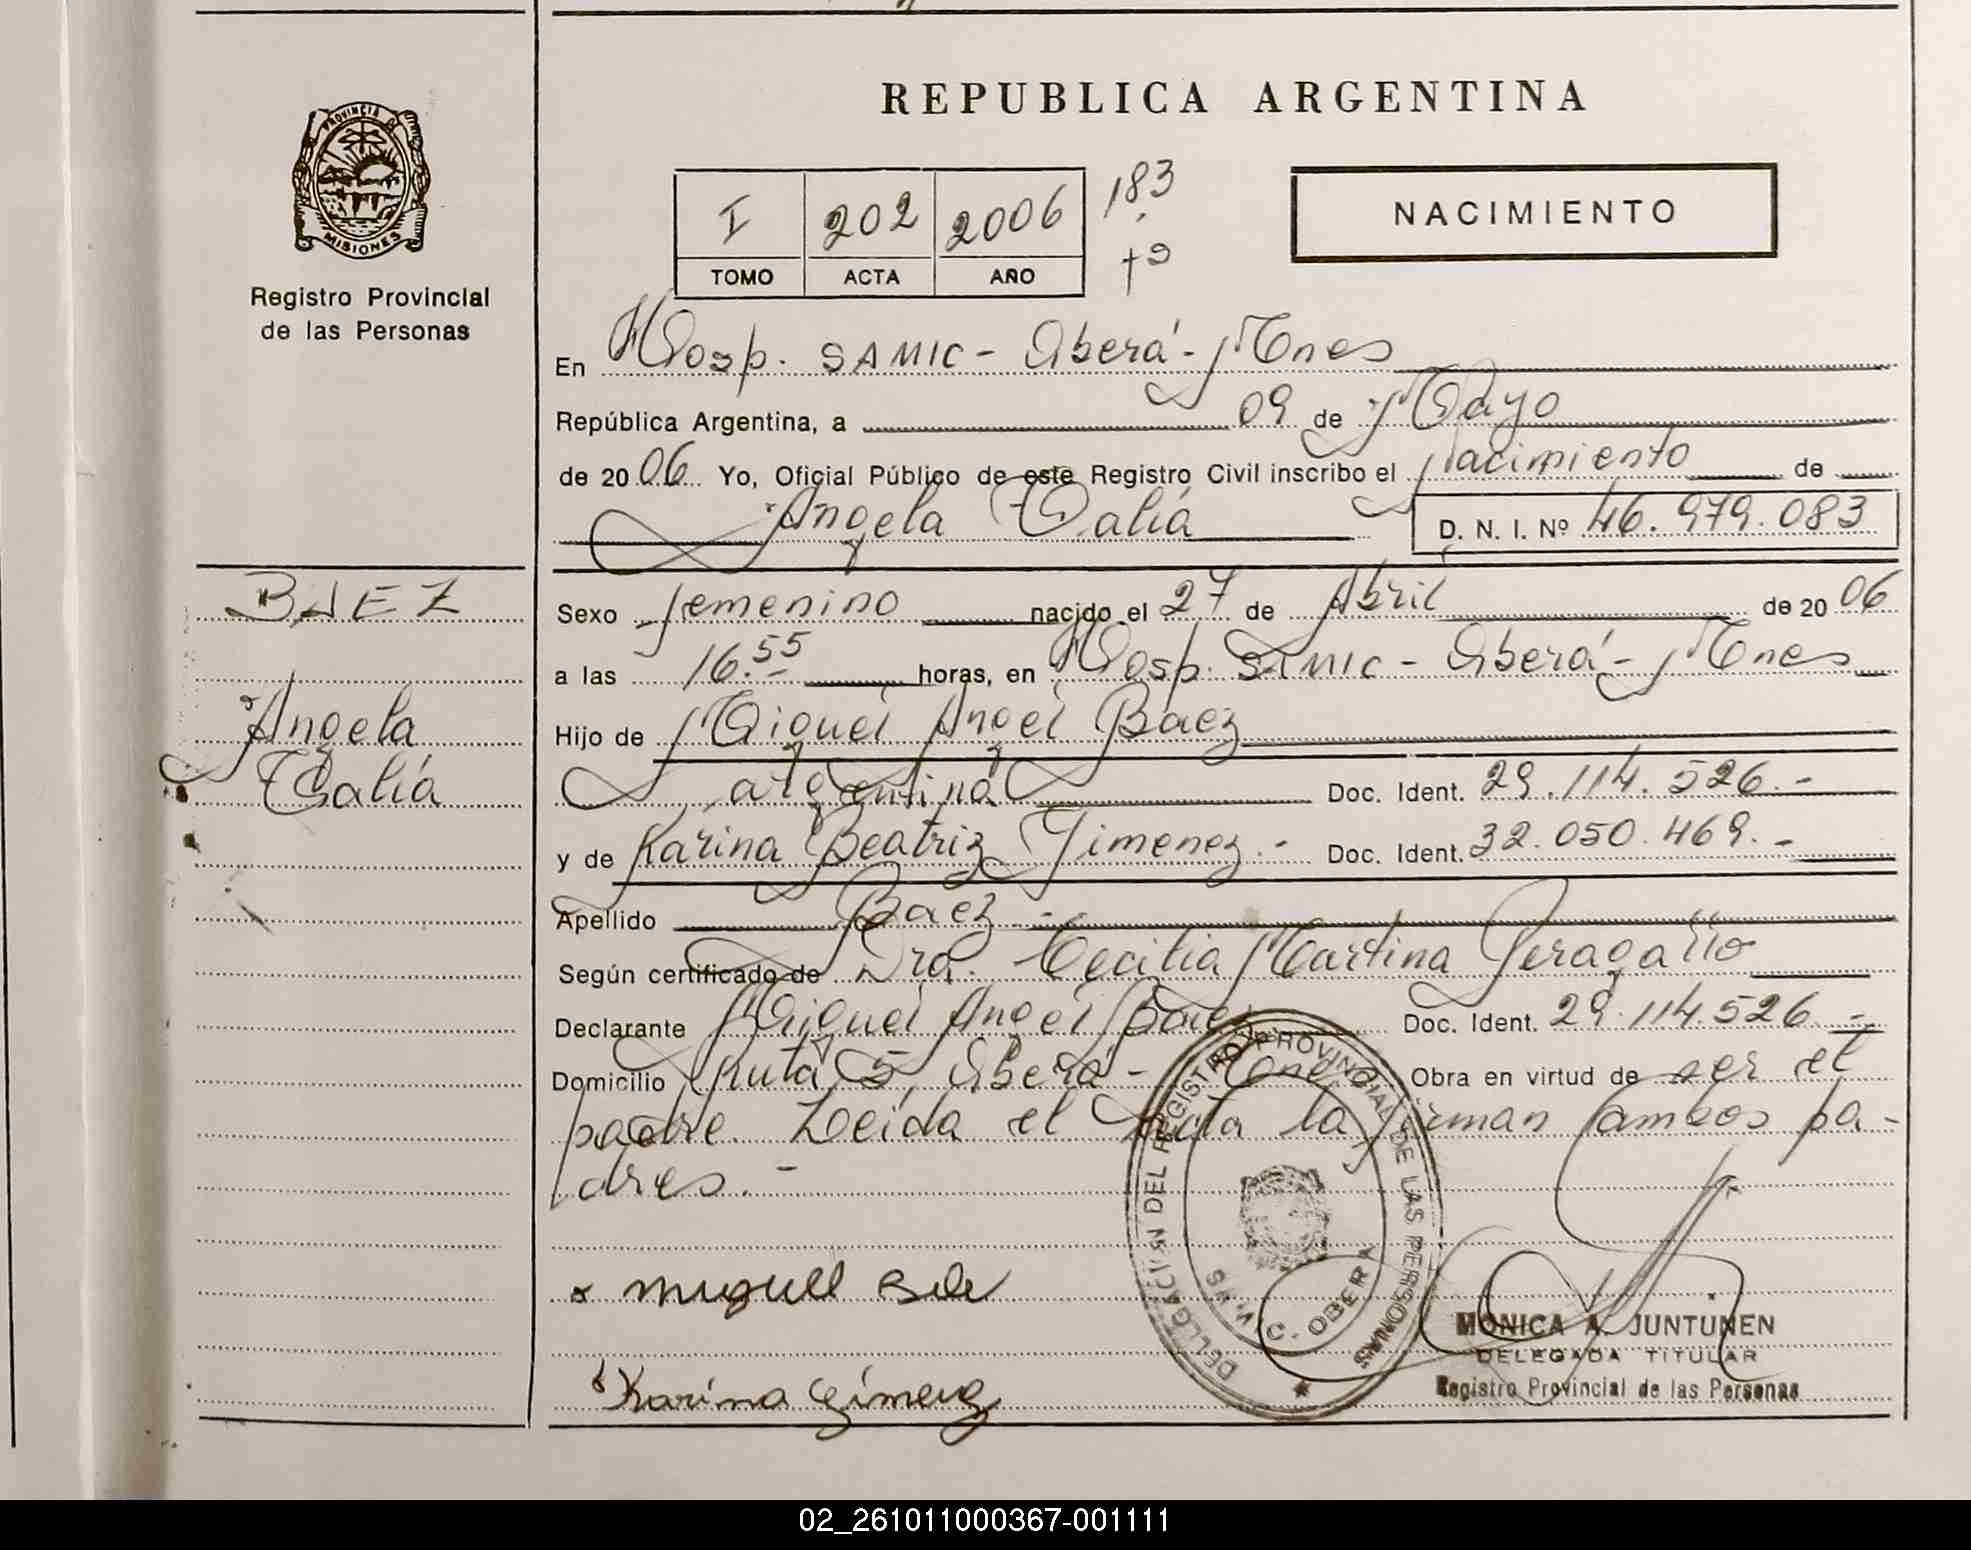 REPUBLICA ARGENTINA
PROVINCIA DE
MISIONES
Registro Provincial
de las Personas
I 202 2006 183
TOMO ACTA AÑO
NACIMIENTO
En Hosp. SAMIC - Oberá - Mnes
República Argentina, a 09 de Mayo
de 2006 Yo, Oficial Público de este Registro Civil inscribo el Nacimiento de
Angela Talía D. N. I. Nº 46.979.083
BAEZ
Angela
Talía
Sexo femenino nacido el 27 de Abril de 2006
a las 16.55 horas, en Hosp. SAMIC - Oberá - Mnes
Hijo de Miguel Angel Baez
argentina Doc. Ident. 29.114.526.-
y de Karina Beatriz Gimenez.- Doc. Ident. 32.050.469.-
Apellido Baez.-
Según certificado de Dra. Cecilia Martina Peragallo
Declarante Miguel Angel Baez Doc. Ident. 29.114.526.-
Domicilio Ruta 5, Oberá - Mnes Obra en virtud de ser el
padre. Leída el Acta la firman ambos pa-
dres.-
DELEGACION DEL REGISTRO PROVINCIAL DE LAS PERSONAS
OBERA
Miguel
Karina Gimenez
MONICA A. JUNTUNEN
DELEGADA TITULAR
Registro Provincial de las Personas
02_261011000367-001111